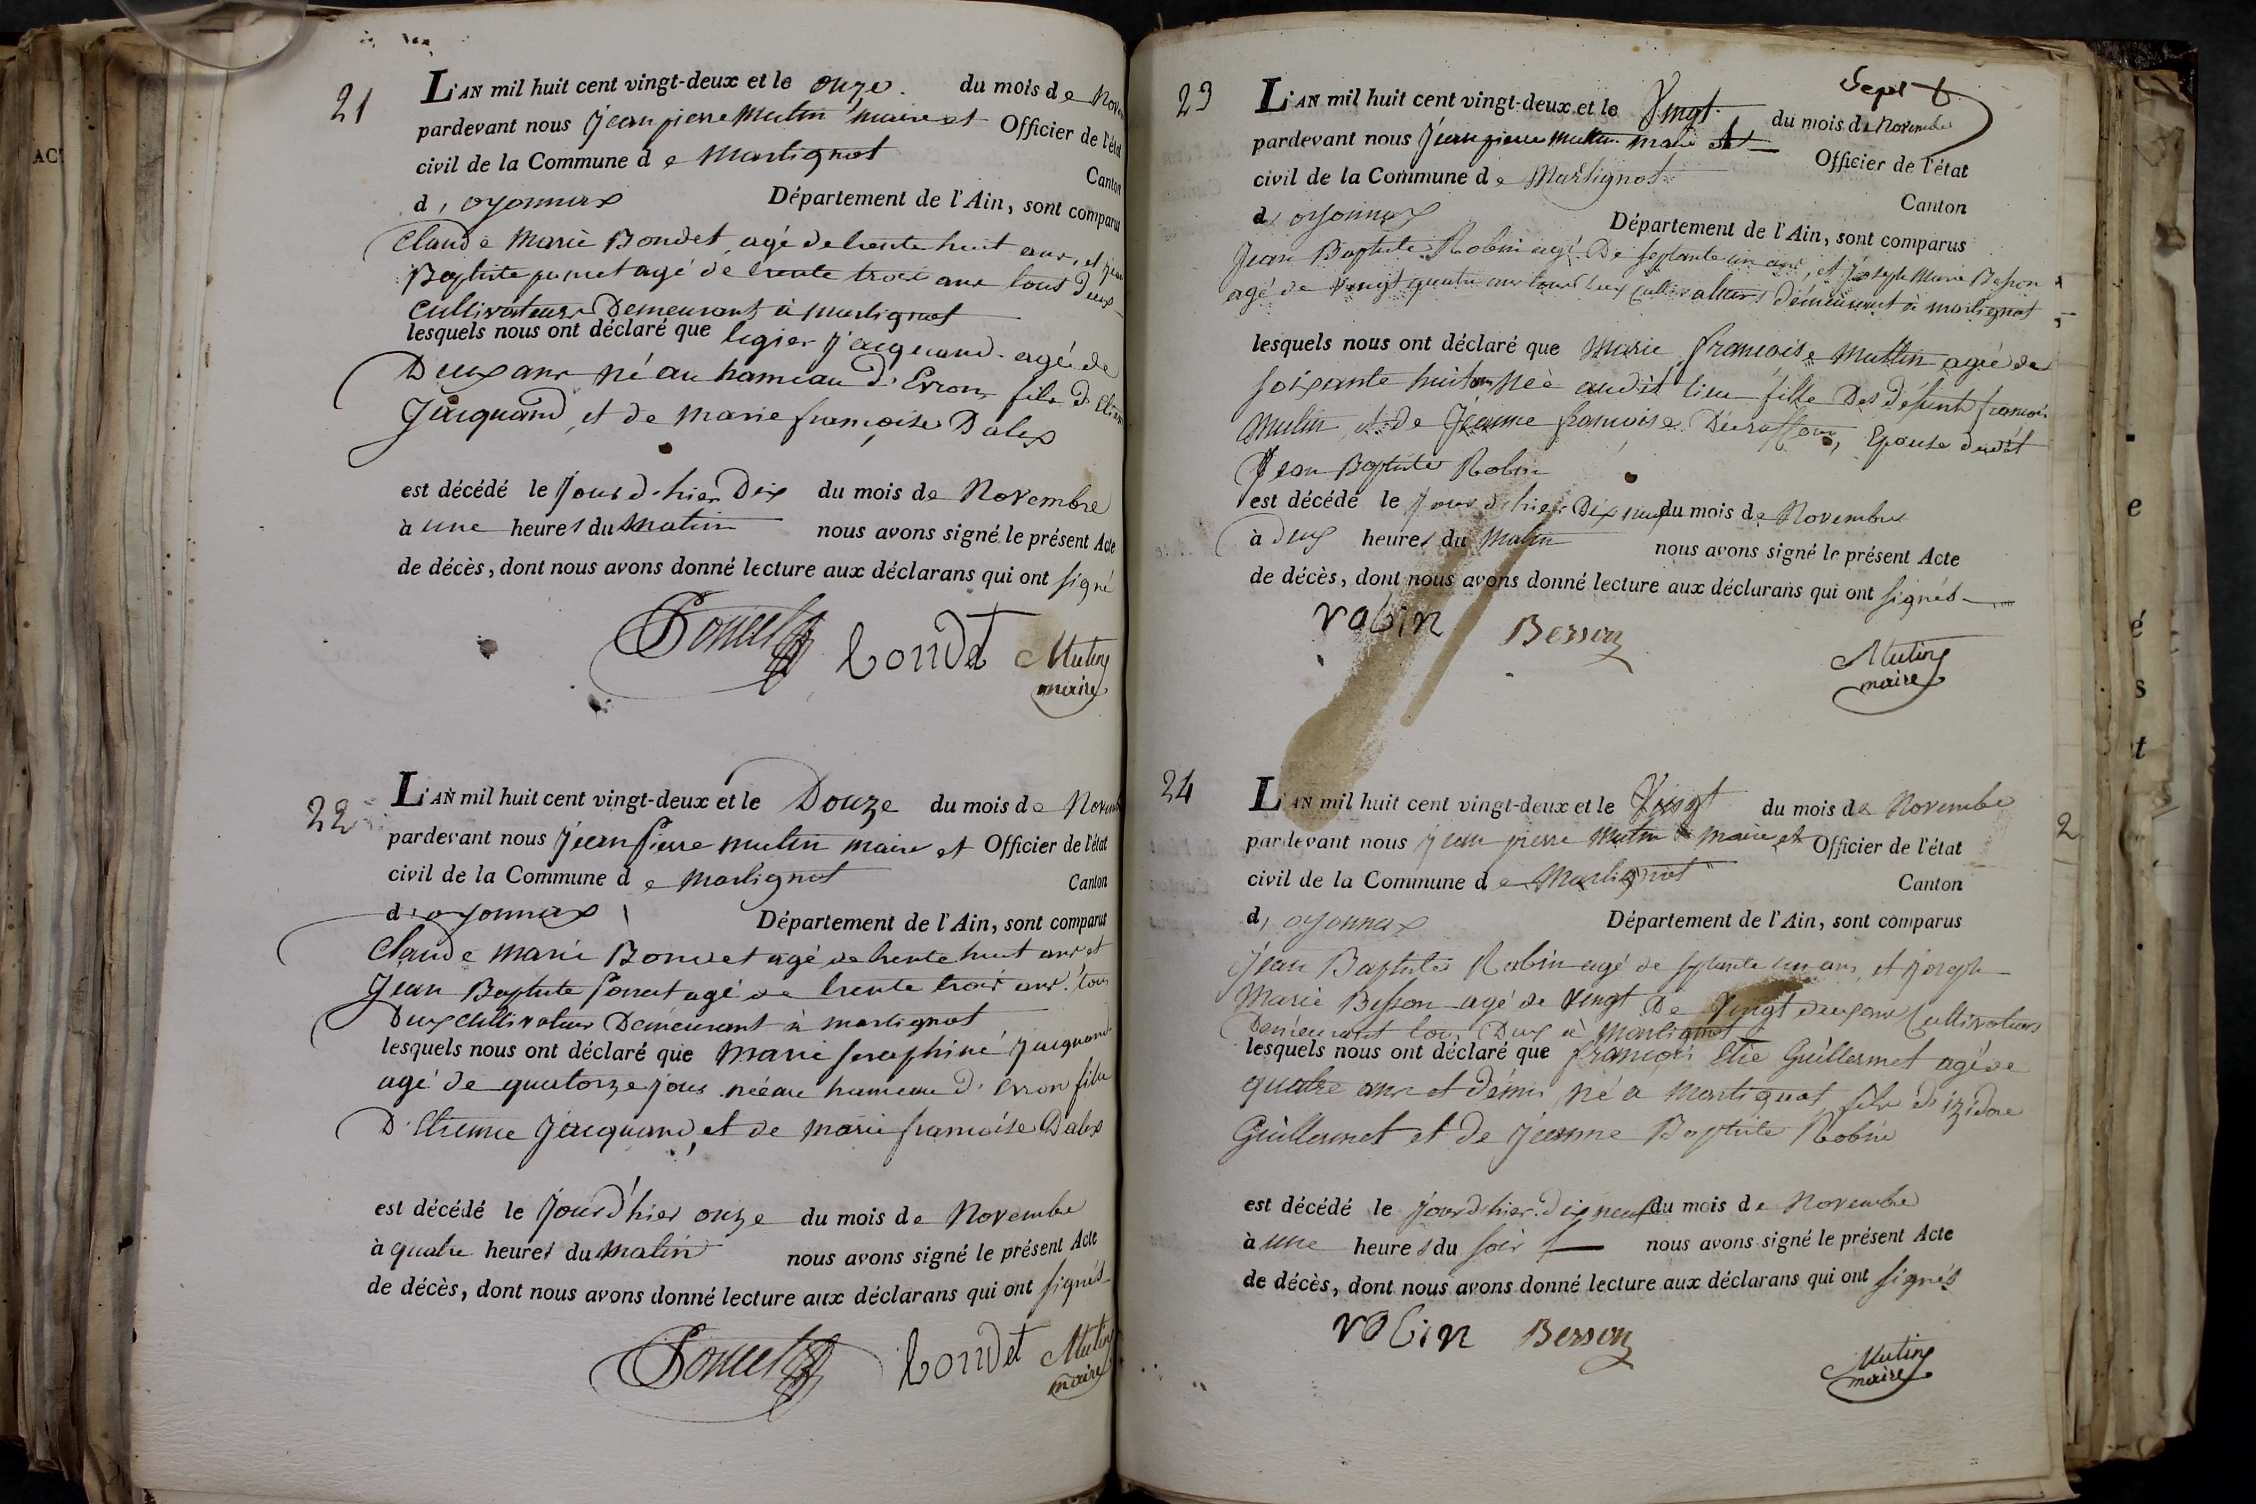 21
L'AN mil huit cent vingt-deux et le onze du mois de Nove
pardevant nous Jean pierre Mutin maire et Officier de l'état
civil de la Commune de Martignat
Canton
d'oyonnax Département de l'Ain, sont comparus
Claude Marie Bondet, agé de trente huit ans, et Jean
Baptiste poncet agé de trente trois ans tous deux
Cultivateurs Demeurant à Martignat
lesquels nous ont déclaré que legier Jacquand agé de
Deux ans né au hameau d'Evron, fils d'Etien
Jacquand, et de Marie françoise Dalex
est décédé le Jour d'hier Dix du mois de Novembre
à une heures du matin nous avons signé le présent Acte
de décès, dont nous avons donné lecture aux déclarans qui ont signé
Poncet bondet Mutin
maire
22
L'AN mil huit cent vingt-deux et le Douze du mois de Novemb
pardevant nous Jean Pierre mutin maire et Officier de l'état
civil de la Commune de Martignat
Canton
d'oyonnax Département de l'Ain, sont comparus
Claude marie Bondet agé de trente huit ans et
Jean Baptiste Poncet agé de trente trois ans. tous
Deux Cultivateurs Demeurant à martignat
lesquels nous ont déclaré que Marie seraphine Jacquand
agé de quatorze jours néé au hameau d'Evron fille
D'Etienne Jacquand, et de marie françoise Dalex
est décédé le Jour d'hier onze du mois de Novembre
à quatre heures du Matin nous avons signé le présent Acte
de décès, dont nous avons donné lecture aux déclarans qui ont signés
Poncet bondet Mutin
maire
Sept
23
L'AN mil huit cent vingt-deux et le Vingt du mois de Novembre
pardevant nous Jean pierre Mutin maire et Officier de l'état
civil de la Commune de Martignat
Canton
d'oyonnax Département de l'Ain, sont comparus
Jean Baptiste Robin agé De septante un ans, et Joseph Marie Besson
agé de Vingt quatre ans tous deux Cultivateurs démeurant à martignat
lesquels nous ont déclaré que Marie françoise Muttin agée de
soixante huit ans Néè audit lieu fille Des défunts francois
Mutin, et de Jeanne françoise Epouse dudit
Jean Baptiste Robin
est décédé le Jour d'hier Dix neuf du mois de Novembre
à deux heures du Matin nous avons signé le présent Acte
de décès, dont nous avons donné lecture aux déclarans qui ont signés
robin Besson
Mutin
maire
24
L'AN mil huit cent vingt-deux et le Vingt du mois de Novembre
pardevant nous Jean pierre Mutin maire et Officier de l'état
civil de la Commune de Martignat
Canton
d'oyonnax Département de l'Ain, sont comparus
Jean Baptiste Robin agé de septante un ans, et Joseph
Marie Besson agé de Vingt De Vingt deux ans Cultivateurs
Demeurant tous Deux à Martignat
lesquels nous ont déclaré que francois Elie Guillermet agé de
quatre ans et démi né a Martignat fils d'izidore
Guillermet et de Jeanne Baptiste Robin
est décédé le jour d'hier dix neuf du mois de Novembre
à une heures du soir nous avons signé le présent Acte
de décès, dont nous avons donné lecture aux déclarans qui ont signés
robin Besson
Mutin
maire
2